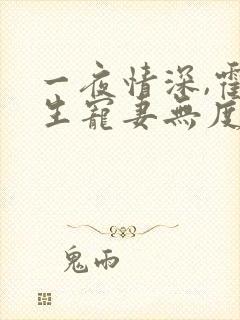 一夜情深,霍
生寵妻無度
鬼雨